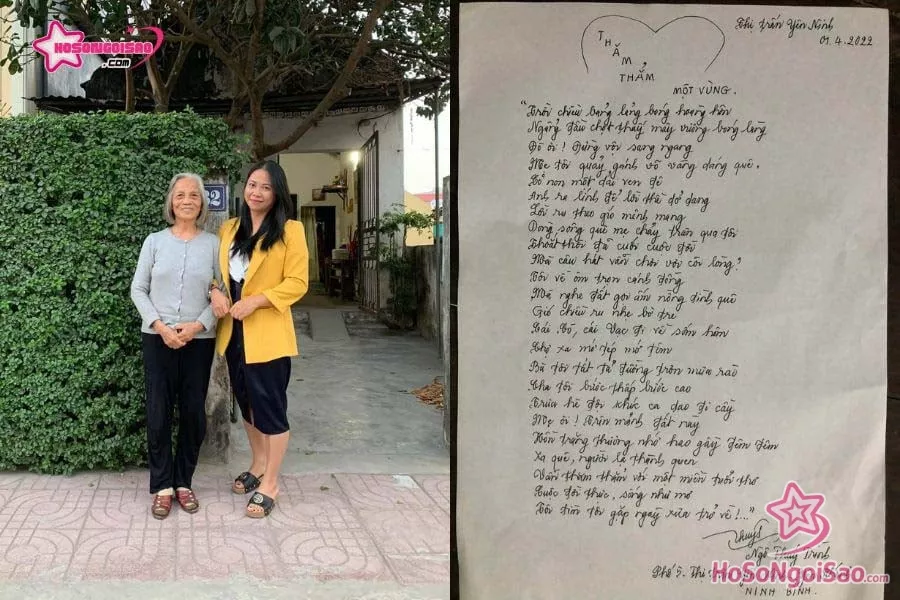 HoSoNgoiSao
.com
22
Thị trấn Yên Ninh
01.4.2022
THĂM THẲM
MỘT VÙNG.
"Triền chiều bảng lảng bóng hoàng hôn
Ngẩng đầu chợt thấy mây vương bóng làng
Đò ơi! Đừng vội sang ngang
Mẹ tôi quảy gánh võ vàng dáng quê.
Cỏ non một dải ven đê
Anh ra lính để lời thề dở dang
Lời ru theo gió mênh mang
Dòng sông quê mẹ chảy tràn qua tôi
Thoắt thôi đã cuối cuộc đời
Mà câu hát vẫn chơi vơi cõi lòng?
Tôi về ôm trọn cánh đồng
Mà nghe đất gọi ấm nồng tình quê
Gió chiều ru nhẹ bờ tre
Cái Cò, cái Vạc đi về sớm hôm
Chợ xa mớ tép mớ tôm
Bà tôi tất tả đường trơn mưa rào
Cha tôi bước thấp bước cao
Trưa hè đôi khúc ca dao đi cầy
Mẹ ơi! Trên mảnh đất này
Vầng trăng thương nhớ hao gầy đêm đêm
Xa quê, người lạ thành quen
Vẫn thăm thẳm với một miền tuổi thơ
Cuộc đời thực, sống như mơ
Tôi tìm tôi gặp ngày xưa trở về!..."
Ngô Thuý
Phố 5. Thị
NINH BÌNH.
HoSoNgoiSao.com